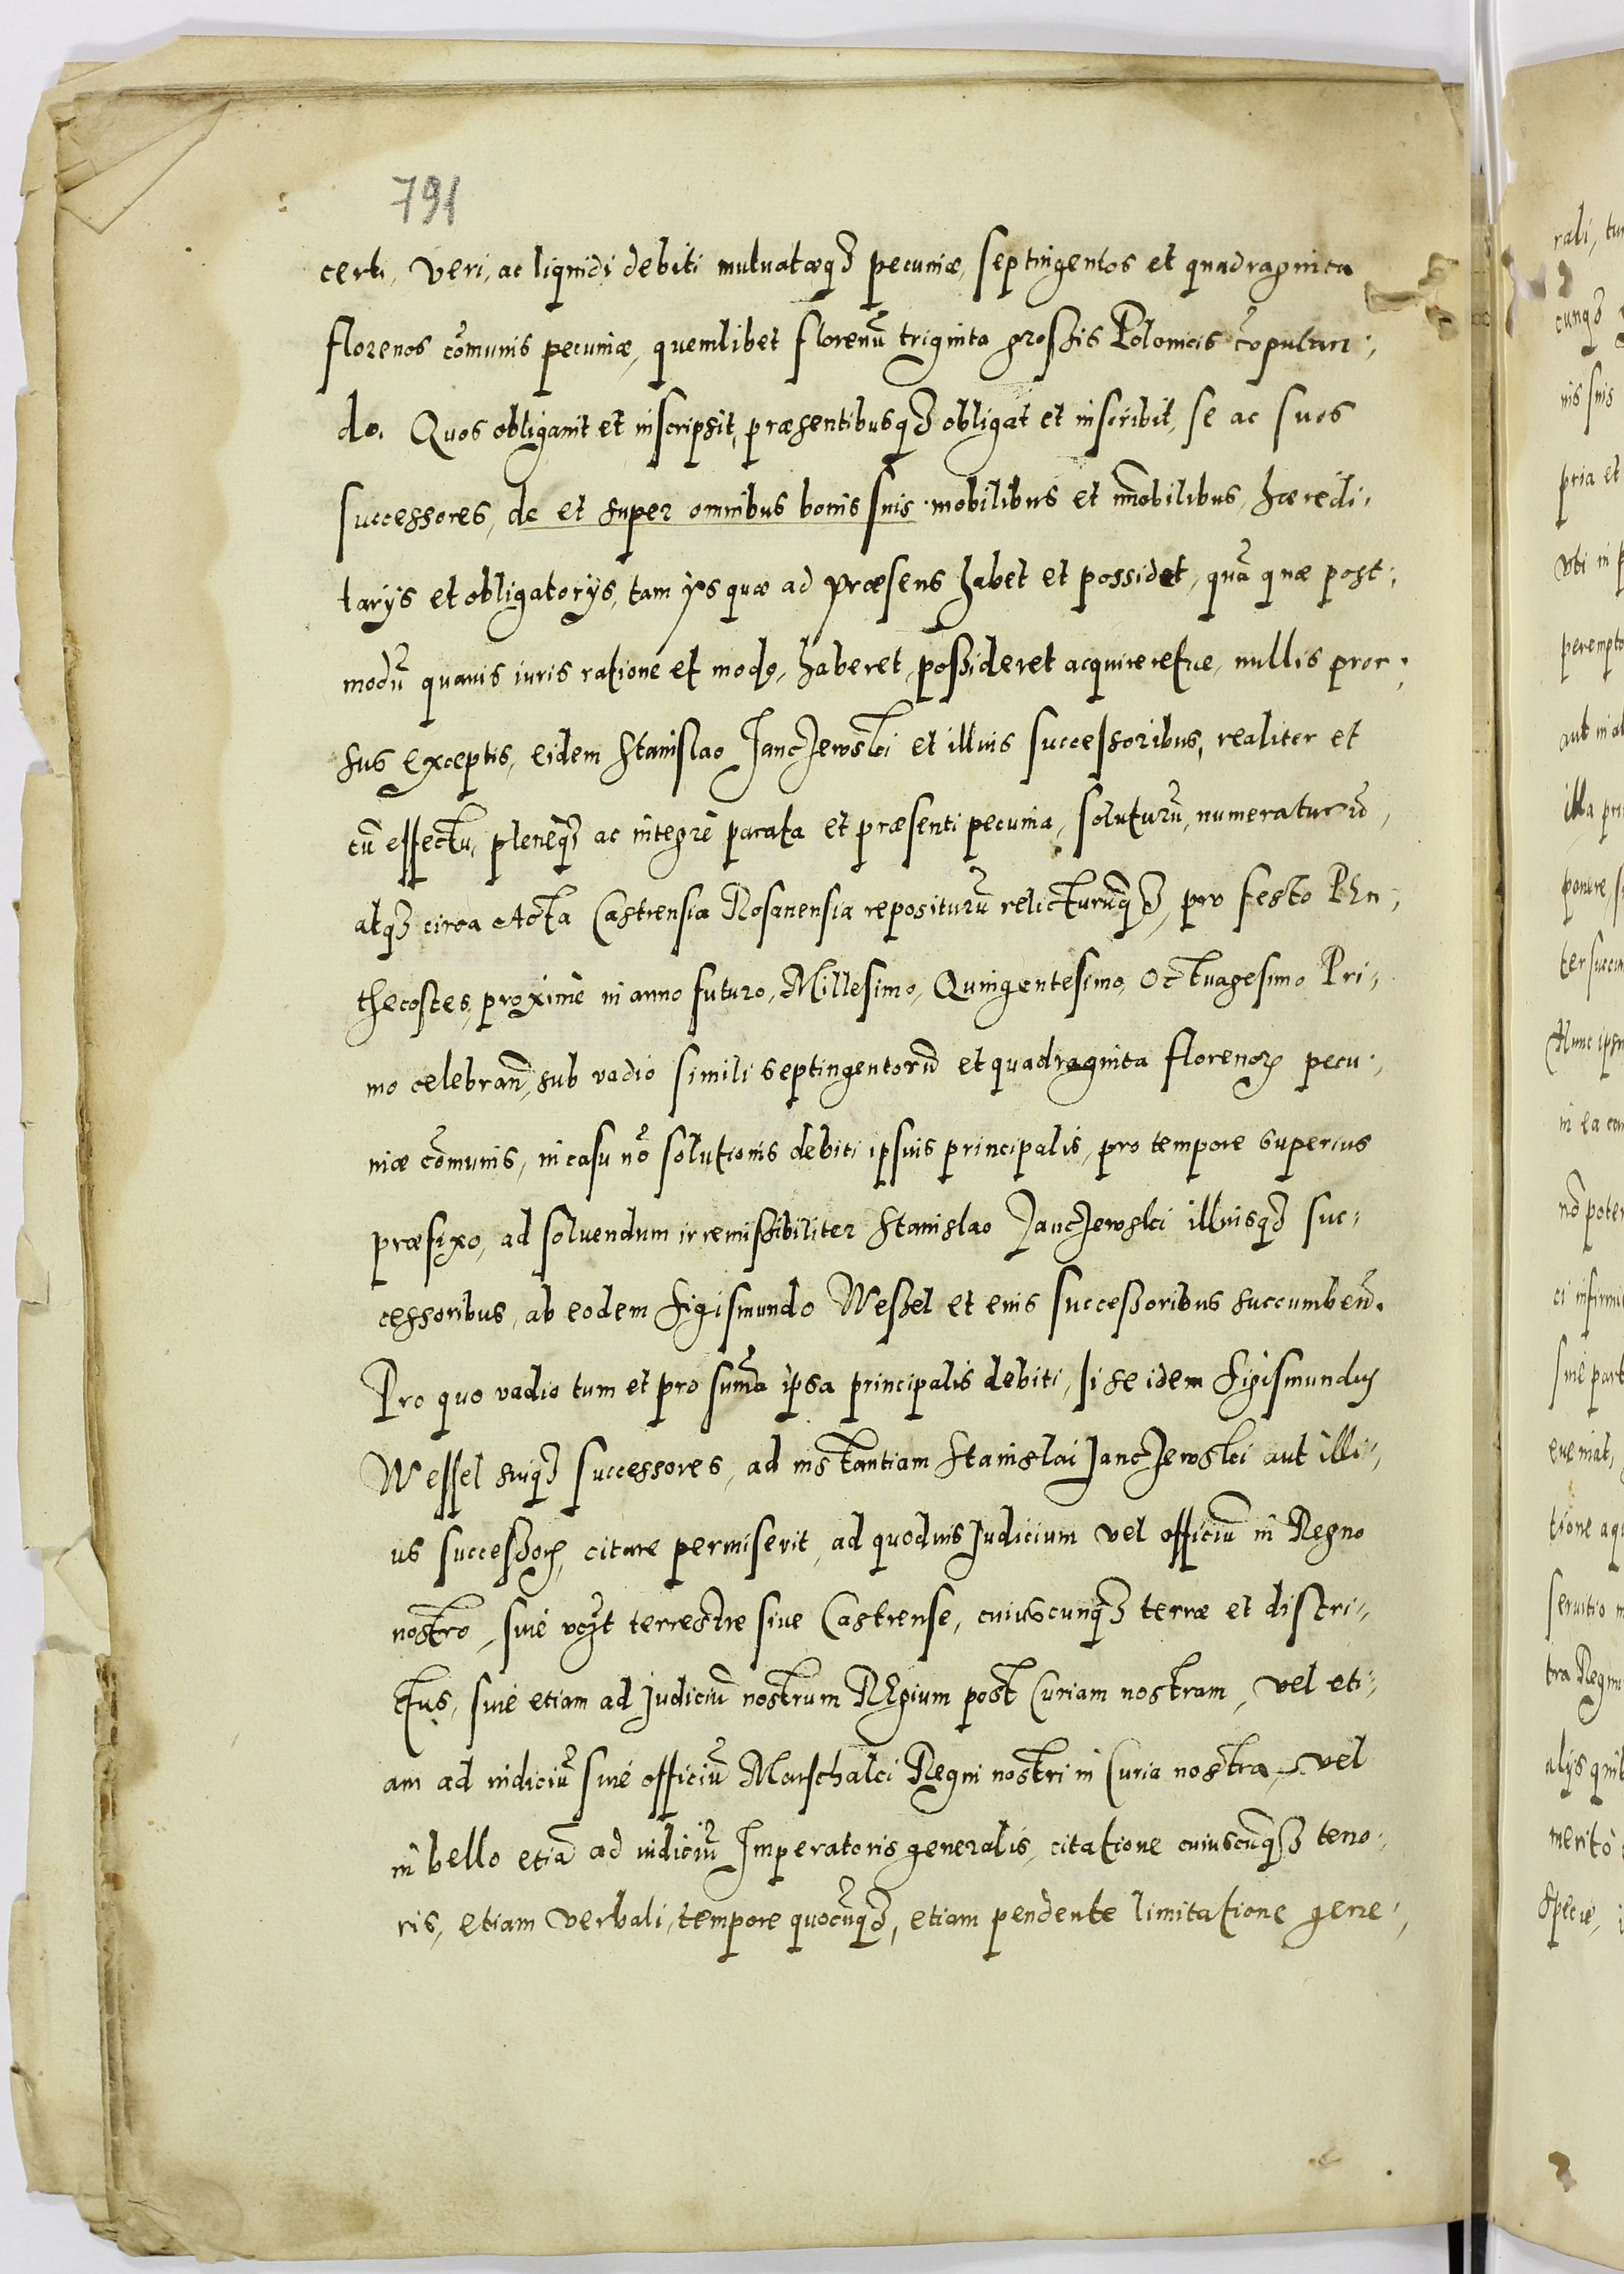 791
certi, veri, ac liquidi debiti mutuatæq₃ pecuniæ, septingentos et quadraginta
florenos cōmunis pecuniæ, quemlibet florenū triginta grossis Polonicis cōputan-
do. Quos obligauit et inscripsit, præsentibusq₃ obligat et inscribit, se ac suos
successores, de et super omnibus bonis suis mobilibus et īmobilibus, hæredi-
tarys et obligatorys, tam ys quæ ad præsens habet et possidet, quā quæ post-
modū quauis iuris ratione et modo, haberet, possideret acquireretue, nullis pror-
sus exceptis, eidem Stanislao Janczewski et illius successoribus, realiter et
cū effectu, pleneq₃ ac integrè parata et præsenti pecunia, soluturū, numeraturū,
atq₃ circa Acta Castrensia Rosanensia repositurū relicturūq₃, pro festo Pen-
thecostes, proximè in anno futuro, Millesimo, Quingentesimo, Octuagesimo Pri-
mo celebran̄, sub vadio simili septingentorū et quadraginta florenoꝝ pecu-
niæ cōmunis, in casu nō solutionis debiti ipsius principalis, pro tempore superius
præfixo, ad soluendum irremissibiliter Stanislao Janczewski illiusq₃ suc-
cessoribus, ab eodem Sigismundo Wessel et eius successoribus succumben̄.
Pro quo vadio tum et pro sum̄a ipsa principalis debiti, si se idem Sigismundus
Wessel suiq₃ successores, ad instantiam Stanislai Janczewski aut illi-
us successoꝝ, citare permiserit, ad quoduis Judicium vel officiū in Regno
nostro, siue terrestre siue Castrense, cuiuscunq₃ terræ et distri-
ctus, siue etiam ad Judiciū nostrum REgium post Curiam nostram, vel eti-
am ad iudiciū siue officiū Marschalci Regni nostri in Curia nostra, vel
in bello etiā ad iudiciū Imperatoris generalis, citatione cuiuscūq₃ teno-
ris, etiam verbali, tempore quocūq₃, etiam pendente limitatione gene-